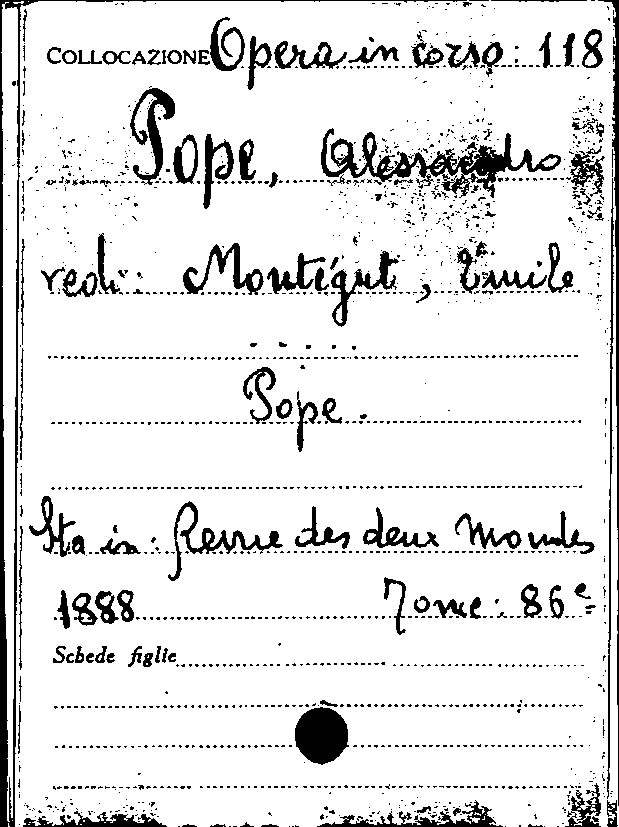 COLLOCAZIONE Opera in corso: 118
Pope, Alessandro
vedi: Montégut, Émile
.....
Pope.
Sta in: Revue des deux Mondes
1888 Tome: 86e
Schede figlie